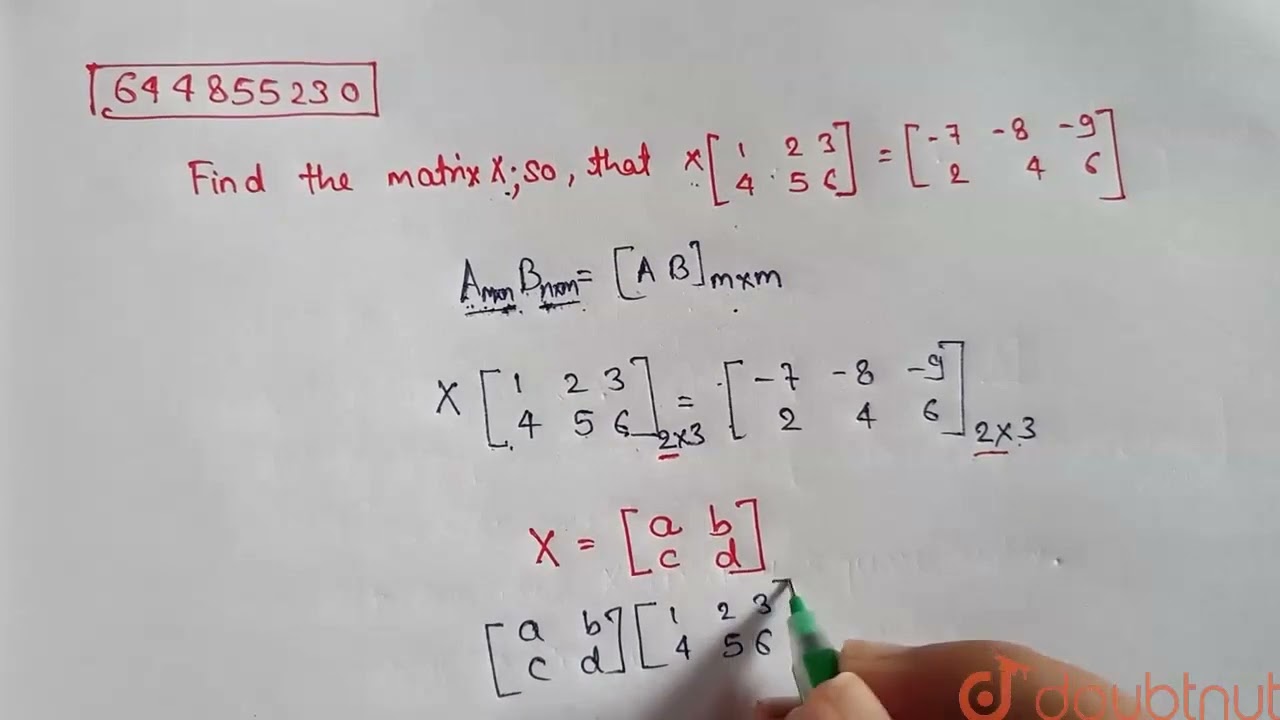 644855230
Find the matrix X; so, that X [ 1 2 3 ] = [ -7 -8 -9 ]
[ 4 5 6 ] [ 2 4 6 ]
A m×n B n×m = [A B] m×m
X [ 1 2 3 ] = [ -7 -8 -9 ]
[ 4 5 6 ] 2×3 [ 2 4 6 ] 2×3
X = [ a b ]
[ c d ]
[ a b ] [ 1 2 3
[ c d ] [ 4 5 6
doubtnut